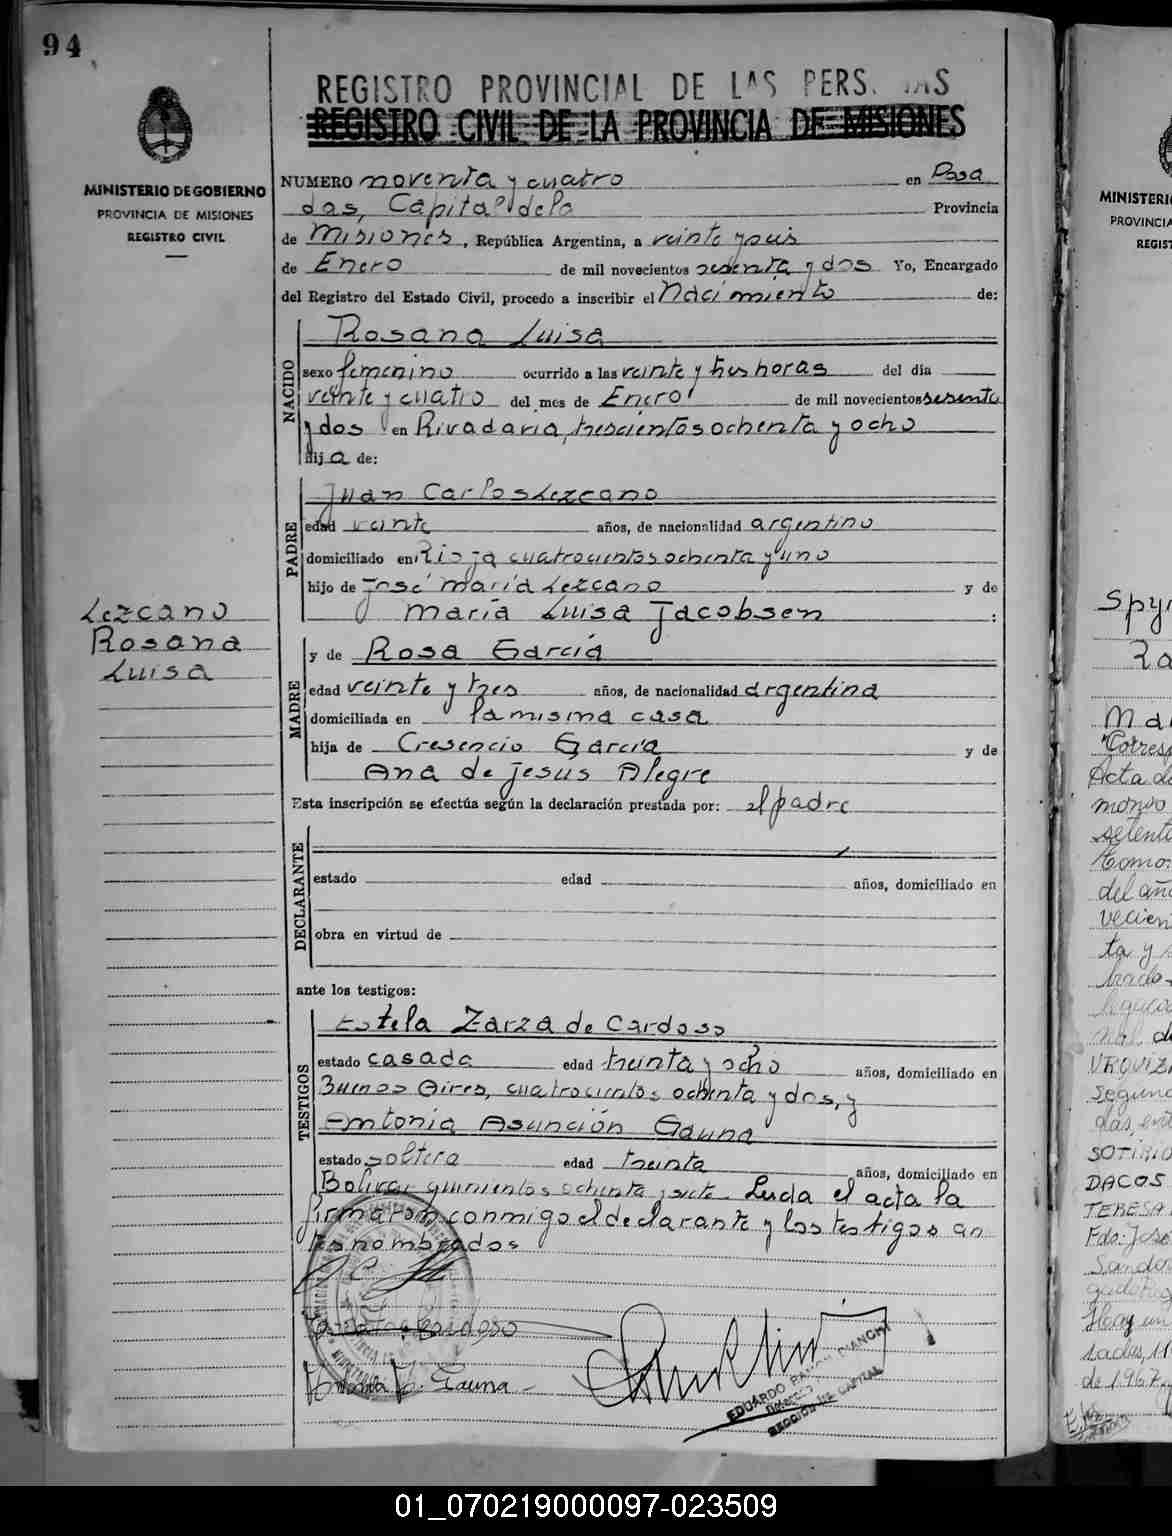 94
REGISTRO PROVINCIAL DE LAS PERS AS
REGISTRO CIVIL DE LA PROVINCIA DE MISIONES
MINISTERIO DE GOBIERNO
PROVINCIA DE MISIONES
REGISTRO CIVIL
NUMERO noventa y cuatro en Posa
das, Capital de la Provincia
de Misiones, República Argentina, a veinte y seis
de Enero de mil novecientos sesenta y dos Yo, Encargado
del Registro del Estado Civil, procedo a inscribir el Nacimiento de:
NACIDO
Rosana Luisa
sexo femenino ocurrido a las veinte y tres horas del día
veinte y cuatro del mes de Enero de mil novecientos sesenta
y dos en Rivadavia, trescientos ochenta y ocho
hija de:
PADRE
Juan Carlos Lezcano
edad veinte años, de nacionalidad argentino
domiciliado en Rioja cuatrocientos ochenta y uno
hijo de José María Lezcano y de
María Luisa Jacobsen :
Lezcano
Rosana
Luisa
MADRE
y de Rosa García
edad veinte y tres años, de nacionalidad argentina
domiciliada en la misma casa
hija de Cresencio García y de
Ana de Jesús Alegre
Esta inscripción se efectúa según la declaración prestada por: el padre
DECLARANTE
estado edad años, domiciliado en
obra en virtud de
ante los testigos:
TESTIGOS
Estela Zarza de Cardoso
estado casada edad treinta y ocho años, domiciliado en
Buenos Aires, cuatrocientos ochenta y dos, y
Antonia Asunción Gauna
estado soltera edad treinta años, domiciliado en
Bolivar quinientos ochenta y siete. Leida el acta la
firmaron conmigo el declarante y los testigos an
tes nombrados
Cardoso
A. Gauna
EDUARDO RAMON BIANCHI
SECCION CAPITAL
Spyr
Ra
Ma
"Corres
Acta de
setent
tomo:
del año
vecien
ta y s
URQUIZ
Segund
das, en
SOTIRIO
DACOS
TERESA
Fdo: Jose
Sando
Hay un
de 1967
MINISTERI
PROVINCIA
REGIST
01_070219000097-023509